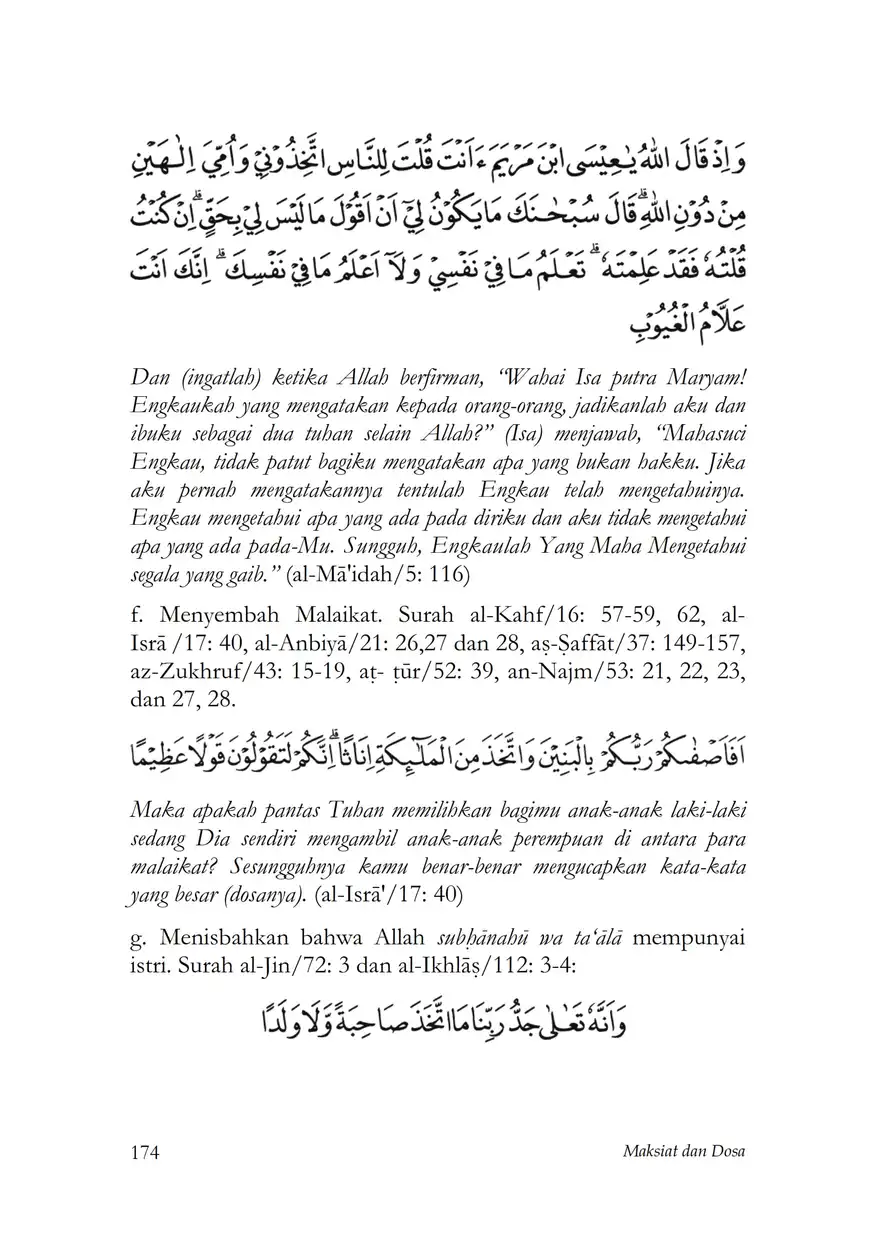 وَاِذْ قَالَ اللّٰهُ يٰعِيْسَى ابْنَ مَرْيَمَ ءَاَنْتَ قُلْتَ لِلنَّاسِ اتَّخِذُوْنِيْ وَاُمِّيَ اِلٰهَيْنِ
مِنْ دُوْنِ اللّٰهِ ۗ قَالَ سُبْحٰنَكَ مَا يَكُوْنُ لِيْٓ اَنْ اَقُوْلَ مَا لَيْسَ لِيْ بِحَقٍّ ۗ اِنْ كُنْتُ
قُلْتُهٗ فَقَدْ عَلِمْتَهٗ ۗ تَعْلَمُ مَا فِيْ نَفْسِيْ وَلَآ اَعْلَمُ مَا فِيْ نَفْسِكَ ۗ اِنَّكَ اَنْتَ
عَلَّامُ الْغُيُوْبِ
Dan (ingatlah) ketika Allah berfirman, “Wahai Isa putra Maryam!
Engkaukah yang mengatakan kepada orang-orang, jadikanlah aku dan
ibuku sebagai dua tuhan selain Allah?” (Isa) menjawab, “Mahasuci
Engkau, tidak patut bagiku mengatakan apa yang bukan hakku. Jika
aku pernah mengatakannya tentulah Engkau telah mengetahuinya.
Engkau mengetahui apa yang ada pada diriku dan aku tidak mengetahui
apa yang ada pada-Mu. Sungguh, Engkaulah Yang Maha Mengetahui
segala yang gaib.” (al-Mā'idah/5: 116)
f. Menyembah Malaikat. Surah al-Kahf/16: 57-59, 62, al-
Isrā /17: 40, al-Anbiyā/21: 26,27 dan 28, aṣ-Ṣaffāt/37: 149-157,
az-Zukhruf/43: 15-19, aṭ- ṭūr/52: 39, an-Najm/53: 21, 22, 23,
dan 27, 28.
اَفَاَصْفٰىكُمْ رَبُّكُمْ بِالْبَنِيْنَ وَاتَّخَذَ مِنَ الْمَلٰۤىِٕكَةِ اِنَاثًا ۗ اِنَّكُمْ لَتَقُوْلُوْنَ قَوْلًا عَظِيْمًا
Maka apakah pantas Tuhan memilihkan bagimu anak-anak laki-laki
sedang Dia sendiri mengambil anak-anak perempuan di antara para
malaikat? Sesungguhnya kamu benar-benar mengucapkan kata-kata
yang besar (dosanya). (al-Isrā'/17: 40)
g. Menisbahkan bahwa Allah subḥānahū wa ta‘ālā mempunyai
istri. Surah al-Jin/72: 3 dan al-Ikhlāṣ/112: 3-4:
وَاَنَّهٗ تَعٰلٰى جَدُّ رَبِّنَا مَا اتَّخَذَ صَاحِبَةً وَّلَا وَلَدًا
174
Maksiat dan Dosa